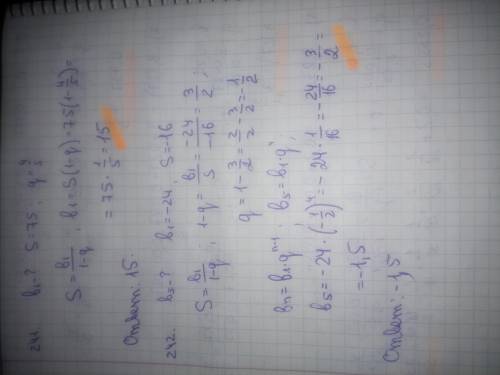 241 b₁-? S=75, q=4/5
S=b₁/(1-q), b₁=S(1-q)=75(1-4/5)=
=75·1/5=15
Ответ: 15.
242. b₅-? b₁=-24, S=-16
S=b₁/(1-q), 1-q=b₁/S=-24/-16=3/2;
q=1-3/2=2/2-3/2=-1/2
bn=b₁·qⁿ⁻¹, b₅=b₁·q⁴;
b₅=-24·(-1/2)⁴=-24·1/16=-24/16=-3/2=
=-1,5
Ответ: -1,5